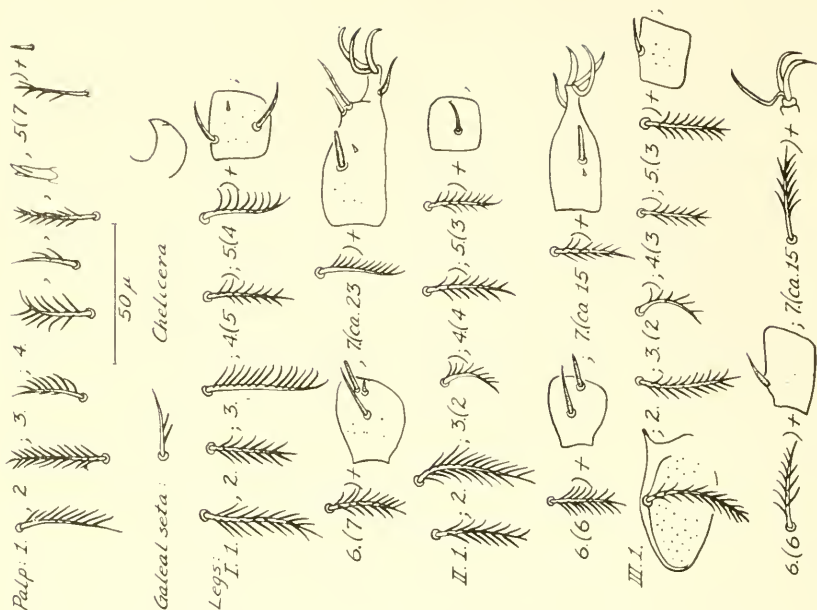 Palp: 1. , 2 ; 3. ; 4. , , , 5.(7 )+
50 µ
Galeal seta: Chelicera
Legs:
I. 1. , 2. ; 3. ; 4.(5 ); 5.(4 )+ ,
6.(7 )+ , 7.(ca. 23 )+ ;
II. 1. ; 2. ; 3.(2 ); 4.(4 ); 5.(3 )+ ,
6.(6 )+ ; 7.(ca 15 )+ ;
III. 1. ; 2. ; 3.(2 ); 4.(3 ); 5.(3 )+ ;
6.(6 )+ ; 7.(ca. 15 )+